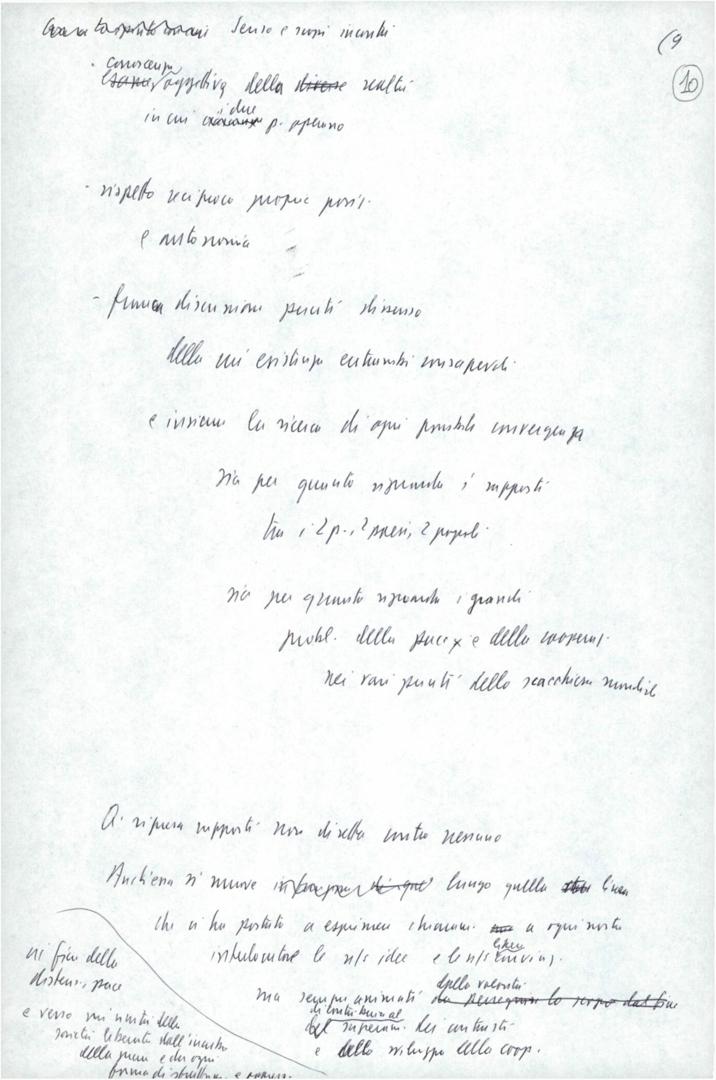 Senso e scopi incontri
(9
10
· conoscenza
oggettiva della diverse realtà
in cui i due p. operano
- rispetto reciproco proprie posiz.
e autonomia
- franca discussione punti dissenso
della cui esistenza entrambi consapevoli
e insieme la ricerca di ogni possibile convergenza
sia per quanto riguarda i rapporti
tra i 2 p., 2 paesi, 2 popoli
sia per quanto riguarda i grandi
probl. della pace e della cooperaz.
nei vari punti dello scacchiere mondiale
ripresa rapporti non diretta contro nessuno
Anch'essa si muove lungo quella linea
che ci ha portato a esprimere chiaram. a ogni nostro
interlocutore le n/s idee e le n/s convinz.
ma sempre animati dalla volontà
di contribuire al
superam. dei contrasti
e dello sviluppo della coop.
ai fini della
distens., pace
e verso una umanità
liberata dall'incubo
della guerra e da ogni
forma di